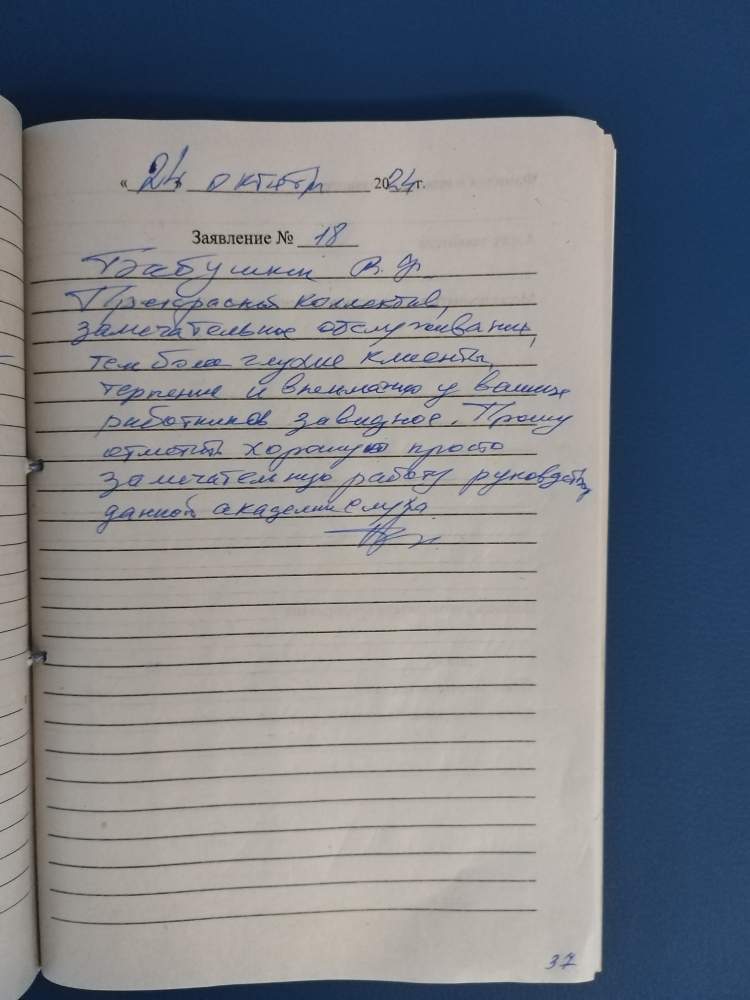 «24 октября 2024 г.
Заявление № 18
Бабушкин В. Ф.
Прекрасный коллектив,
замечательное обслуживание,
тем более глухие клиенты,
терпение и внимание у ваших
работников завидное. Прошу
отметить хорошую просто
замечательную работу руководству
данной академии слуха
37